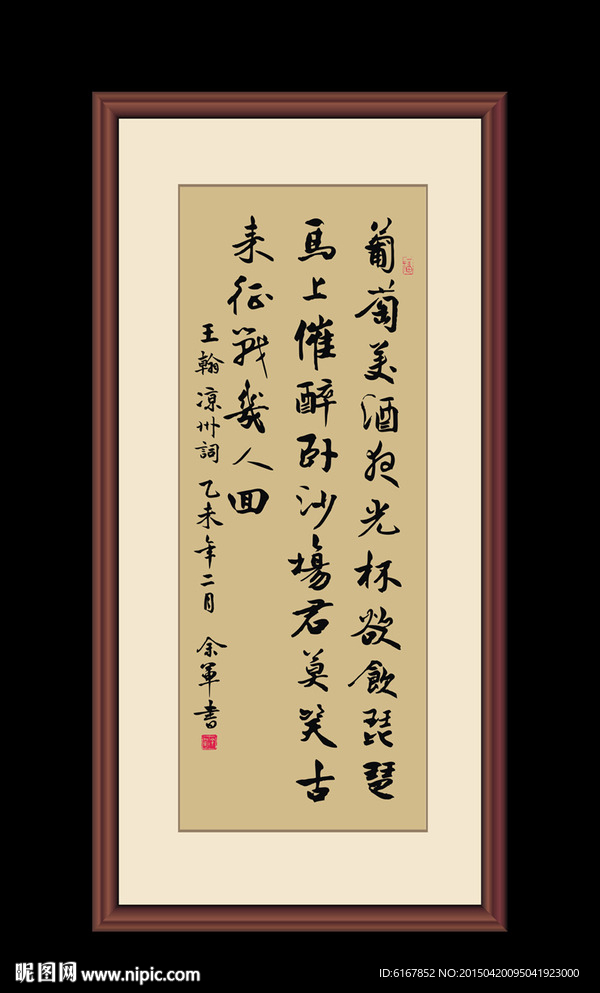 葡萄美酒夜光杯欲飲琵琶
馬上催醉卧沙場君莫笑古
来征戰幾人回
王翰凉州詞 乙未年二月 余軍書
昵图网 www.nipic.com
ID:6167852 NO:20150420095041923000